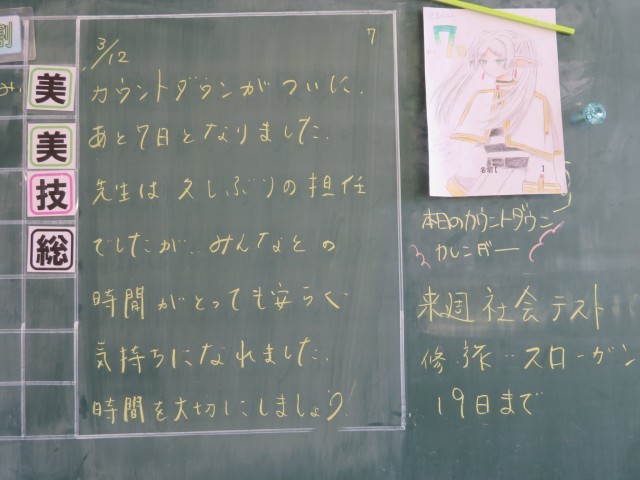 割
美
美
技
総
3/12
7
カウントダウンがついに、
あと7日となりました。
先生は久しぶりの担任
でしたが、みんなとの
時間がとっても安らぐ
気持ちになれました。
時間を大切にしましょう
7
名前【 】
本日のカウントダウン
カレンダー
来週 社会テスト
修・旅…スローガン
19日まで